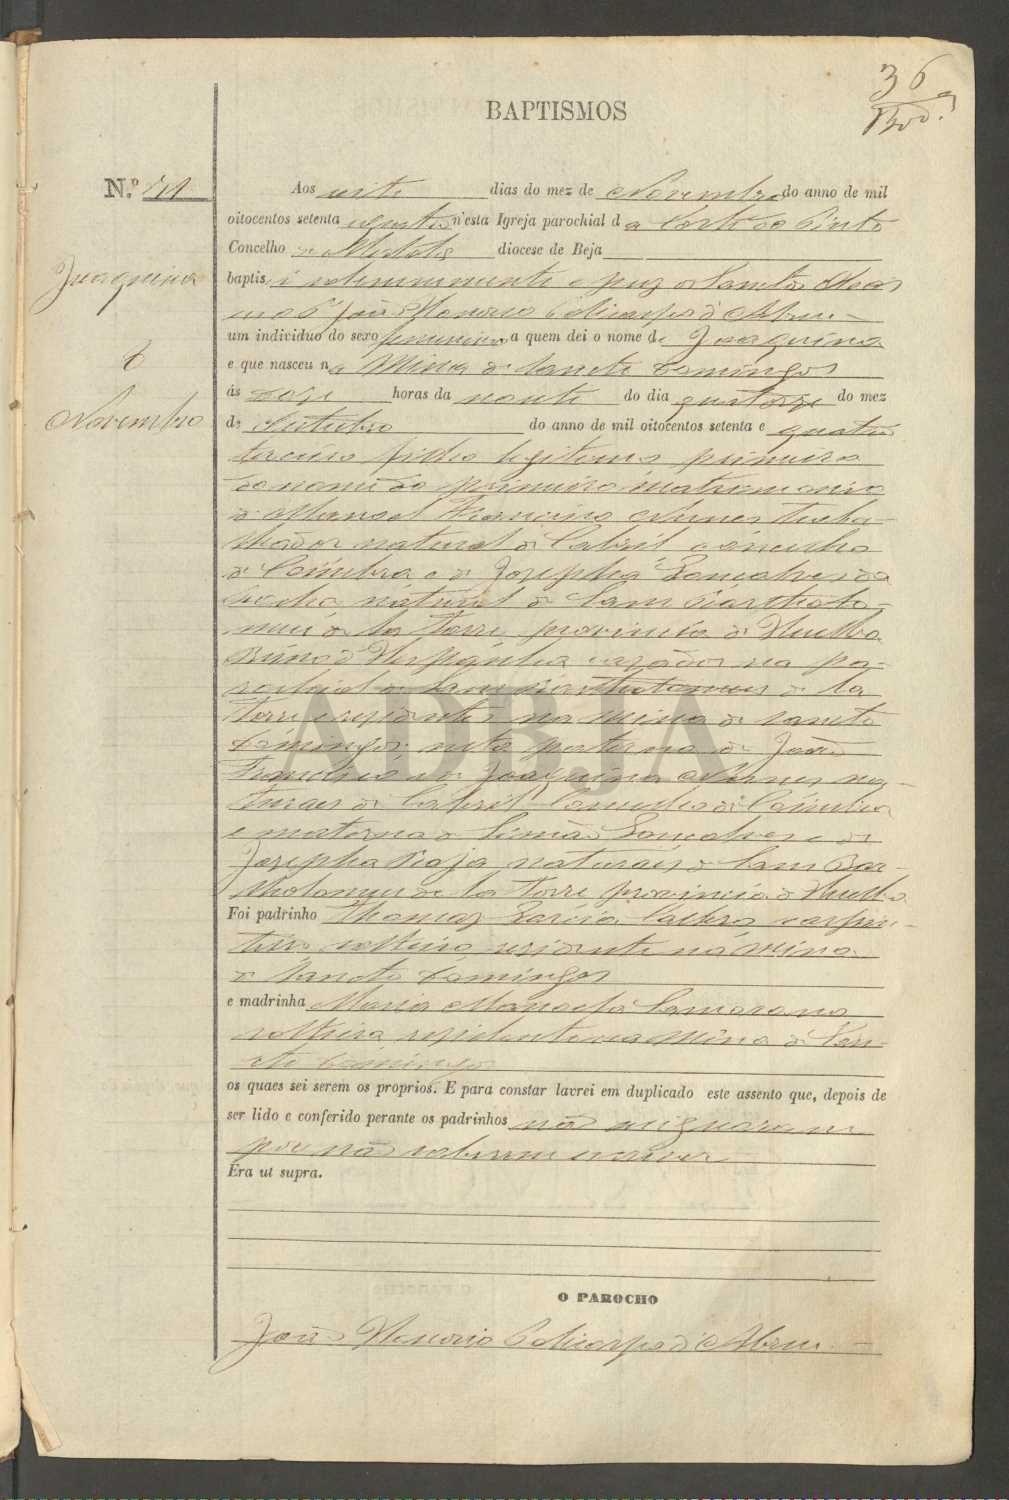 36
BAPTISMOS
N.º
Joaquina
Novembro
Aos oito dias do mez de Novembro do anno de mil
oitocentos setenta e quatro n'esta Igreja parochial da Corte do Pinto
Concelho de Mertola diocese de Beja
baptisei solemnemente e puz os Santos Oleos
João Honorio Policarpo d'Abreu
um individuo do sexo femenino a quem dei o nome de Joaquina
e que nasceu na Mina de Sancto Domingos
ás doze horas da noute do dia quatorze do mez
de Outubro do anno de mil oitocentos setenta e quatro
terceiro filho legitimo primeiro
do nome do primeiro matrimonio
de Manoel Francisco Nunes traba-
lhador natural de Cabril concelho
de Coimbra e de Josepha Gonçalves da
natural de Sam Bartholo-
meu de la Torre provincia de Huelba
Reino d'Hespanha casados na pa-
rochial de Sam Bartholomeu de la
Torre e residentes na Mina de Sancto
Domingos neta paterna de João
Francisco e de Joaquina Nunes na-
turaes de Cabril Concelho de Coimbra
e materna de Simão Gonçalves e de
Josepha naturaes de Sam Bar-
tholomeu de la Torre provincia de Huelba
Foi padrinho Thomaz Garcia carpin-
teiro solteiro residente na Mina
de Sancto Domingos
e madrinha Maria Manoela
solteira residente na Mina de San-
cto Domingos
os quaes sei serem os proprios. E para constar lavrei em duplicado este assento que, depois de
ser lido e conferido perante os padrinhos não asignaram
por não saberem escrever
Era ut supra.
O PAROCHO
João Honorio Policarpo d'Abreu
ADBJA